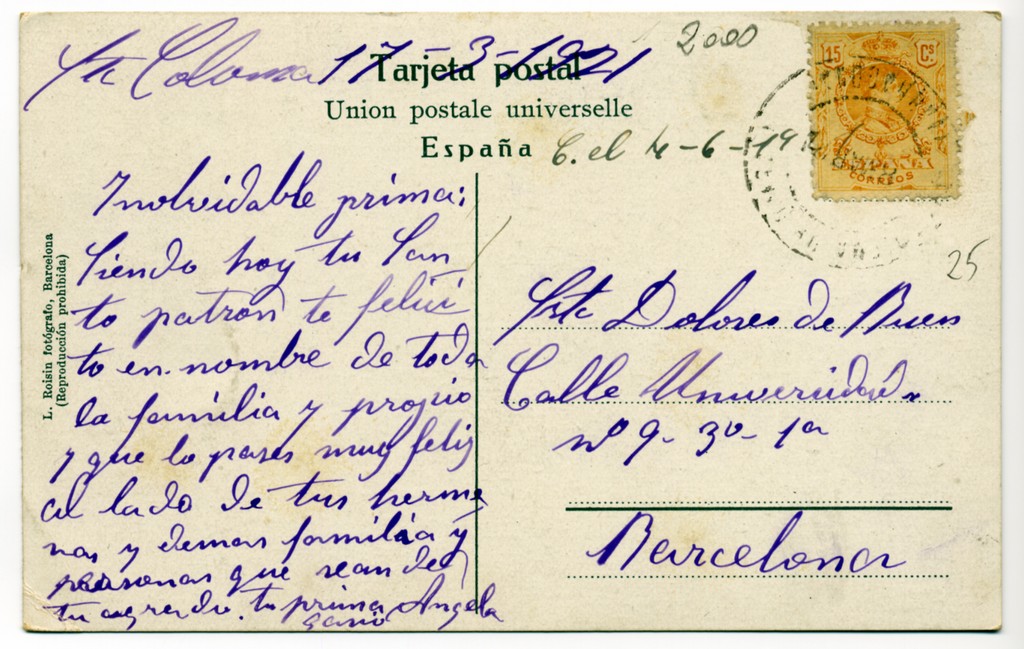 Sta Coloma 17-3-1921
2000
Tarjeta postal
Union postale universelle
España
C. el 4-6-19
15 Cs
CORREOS
25
Inolvidable prima:
Siendo hoy tu San
to patron te felici
to en nombre de toda
la familia y propio
y que lo pases muy feliz
al lado de tus herma
nas y demas familia y
personas que sean de
tu agrado. tu prima Angela
L. Roisin fotógrafo, Barcelona
(Reproducción prohibida)
Srta Dolores de Buen
Calle Universidad
nº 9- 3º- 1ª
Barcelona